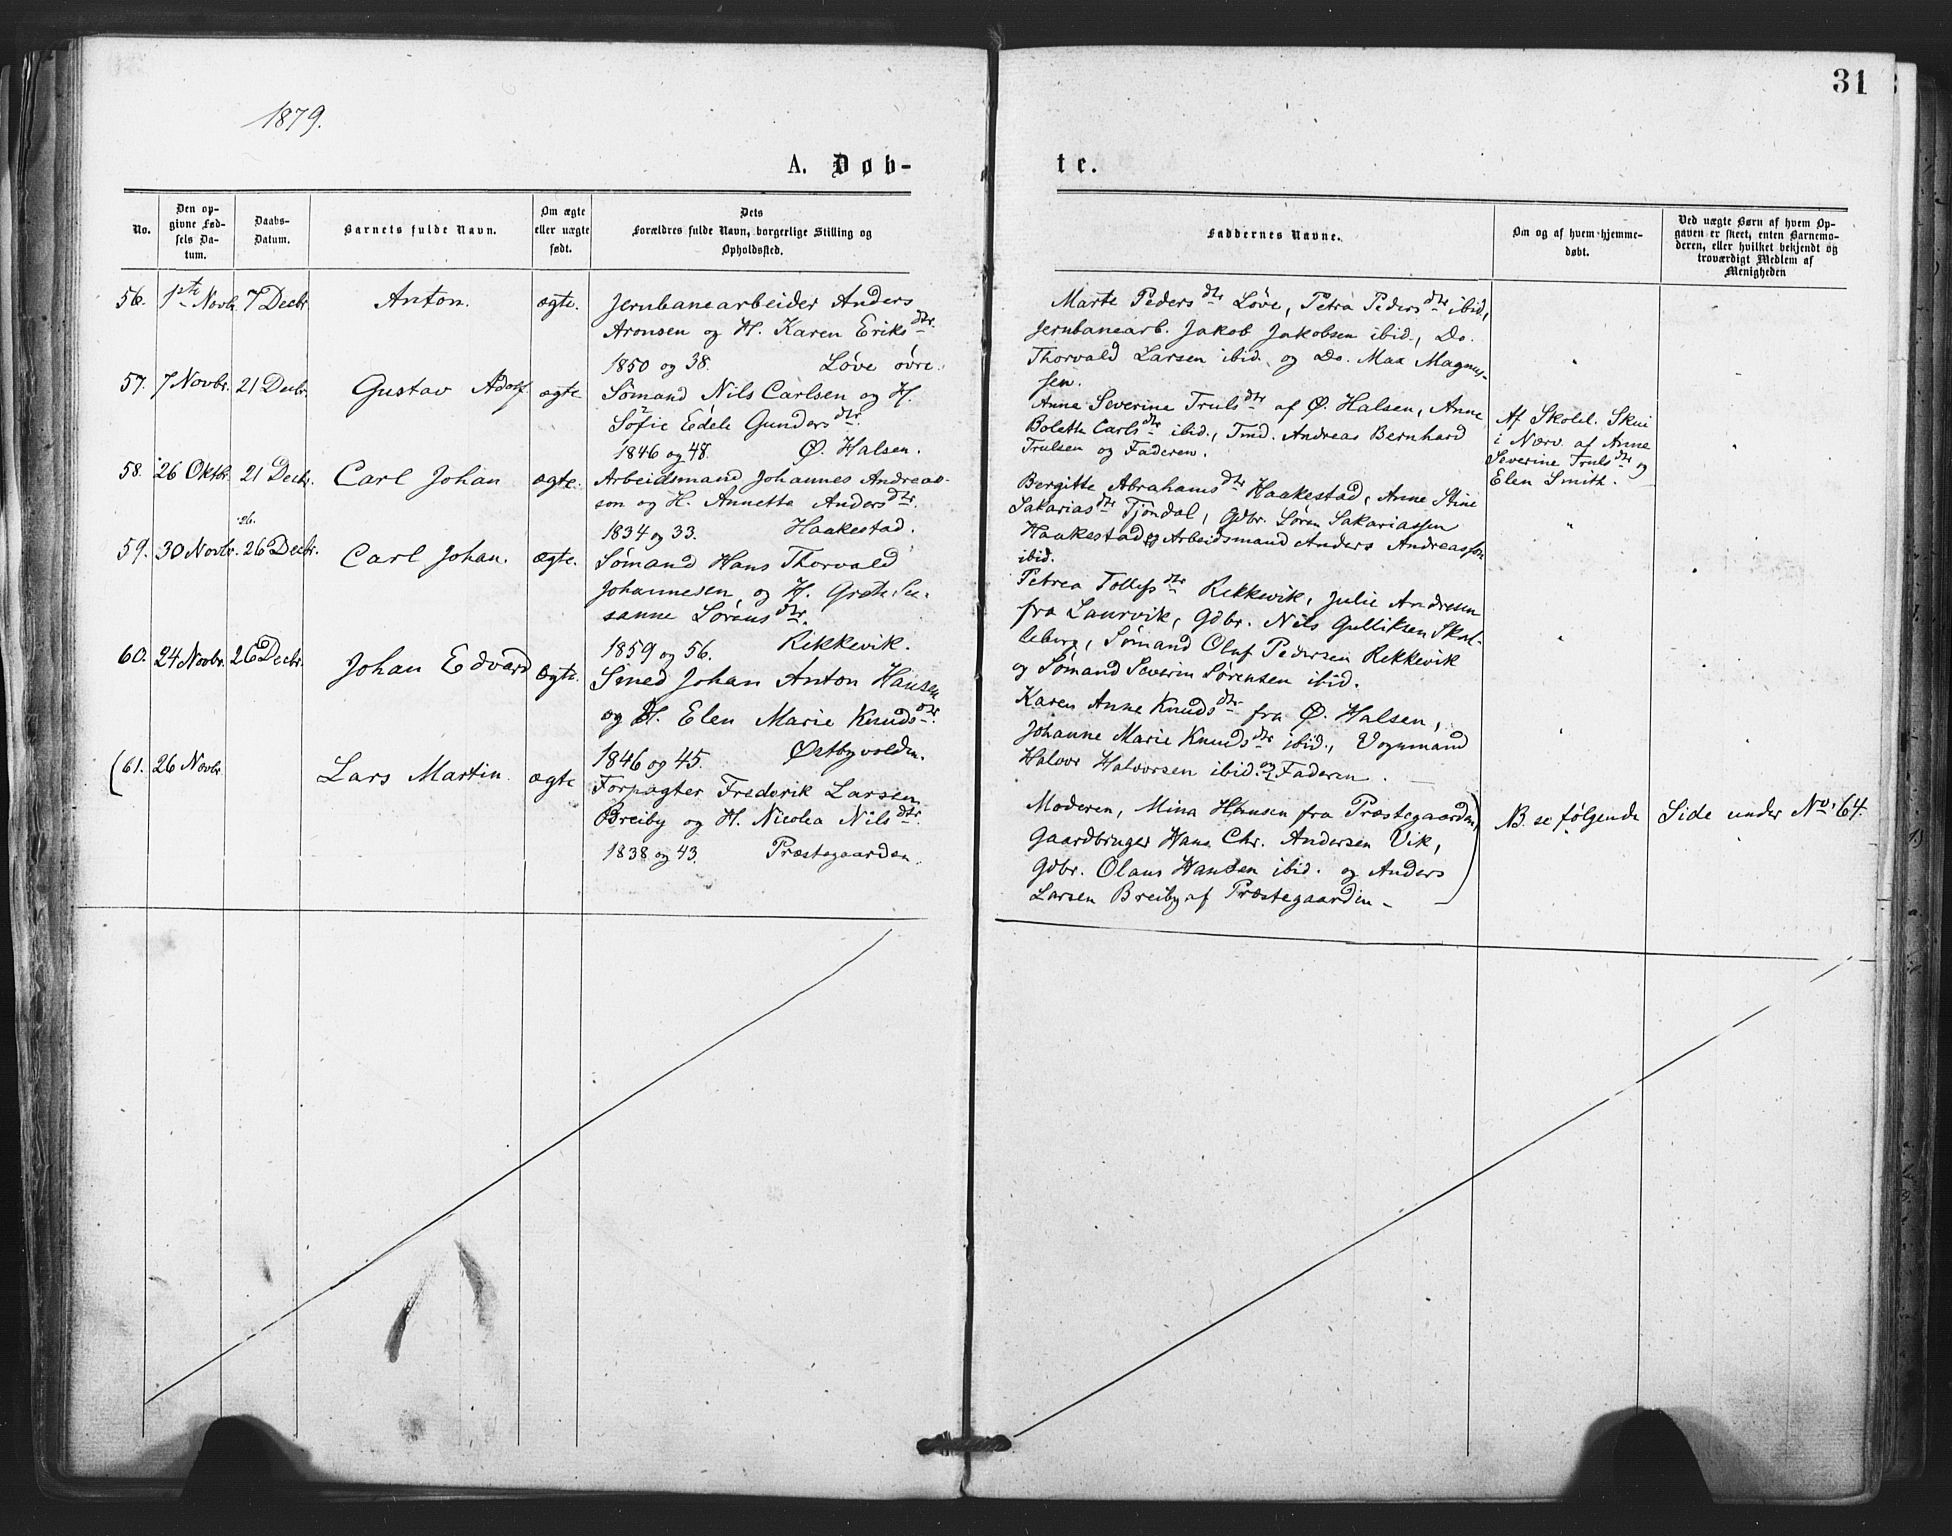 31
1879.
A. Døb-
te.
No.
Den op-
givne Fød-
sels Da-
tum.
Daabs-
Datum.
Barnets fulde Navn.
Om ægte
eller uægte
født.
Dets
Forældres fulde Navn, borgerlige Stilling og
Opholdssted.
Faddernes Navne.
Om og af hvem hjemme-
døbt.
Ved uægte Børn af hvem Op-
gaven er skeet, enten Barnemo-
deren, eller hvilket bekjendt og
troværdigt Medlem af
Menigheden
56. 1ste Novbr. 7 Decbr. Anton. ægte.
Jernbanearbeider Anders
Aronsen og H. Karen Eriksdtr.
1850 og 38. Løve øvre.
Marte Pedersdtr Løve, Petra Pedersdtr ibid,
Jernbanearb. Jakob Jakobsen ibid., Do.
Thorvald Larsen ibid. og Do. Max Magnus-
sen.
57. 7 Novbr. 21 Decbr. Gustav Adolf ægte.
Sømand Nils Carlsen og H.
Sofie Edele Gundersdtr.
1846 og 48. Ø. Halsen.
Anne Severine Trulsdtr af Ø. Halsen, Anne
Bolette Carlsdtr ibid., Tmd. Andreas Bernhard
Trulsen og Faderen.
Af Skolel. Skui
i Nærv. af Anne
Severine Trulsdtr og
Elen Smith.
58. 26 Oktbr. 21 Decbr. Carl Johan ægte.
Arbeidsmand Johannes Andreas-
son og H. Annette Andersdtr.
1834 og 33. Haakestad.
Bergitte Abrahamsdtr Haakestad, Anne Stine
Sakariasdtr Tjøndal, Gdbr. Søren Sakariassen
Haakestad og Arbeidsmand Anders Andreassen
ibid.
26.
59. 30 Novbr. 26 Decbr. Carl Johan. ægte.
Sømand Hans Thorvald
Johannesen og H. Grete Su-
sanne Sørensdtr.
1859 og 56. Rekkevik.
Petrea Tollefsdtr Rekkevik, Julie Andresen
fra Laurvik, Gdbr. Nils Gulliksen Skal-
leberg, Sømand Oluf Pedersen Rekkevik
og Sømand Severin Sørensen ibid.
60. 24 Novbr. 26 Decbr. Johan Edvard ægte.
Smed Johan Anton Hansen
og H. Elen Marie Knudsdtr.
1846 og 45. Østbyvolden.
Karen Anne Knudsdtr fra Ø. Halsen,
Johanne Marie Knudsdtr ibid., Vognmand
Halvor Halvorsen ibid. og Faderen.
(61. 26 Novbr. Lars Martin. ægte
Forpagter Frederik Larsen
Breiby og H. Nicolea Nilsdtr.
1838 og 43. Præstegaarden.
Moderen, Mina Hansen fra Præstegaarden,
Gaardbruger Hans Chr. Andersen Vik,
Gdbr. Olaus Hansen ibid. og Anders
Larsen Breiby af Præstegaarden -)
B. se følgende Side under No. 64.